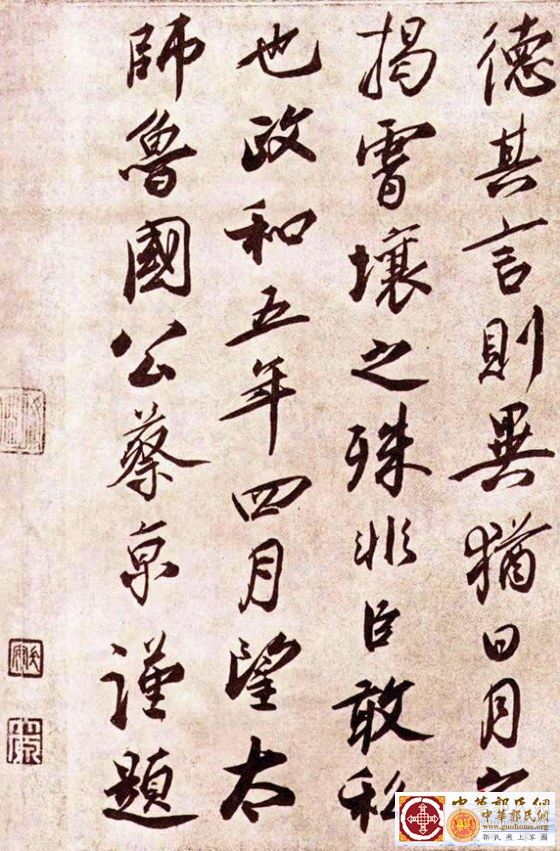 德其言則異猶日月
揭霄壤之殊非臣敢私
也政和五年四月望太
師魯國公蔡京謹題
中華郭氏網
www.guohome.org